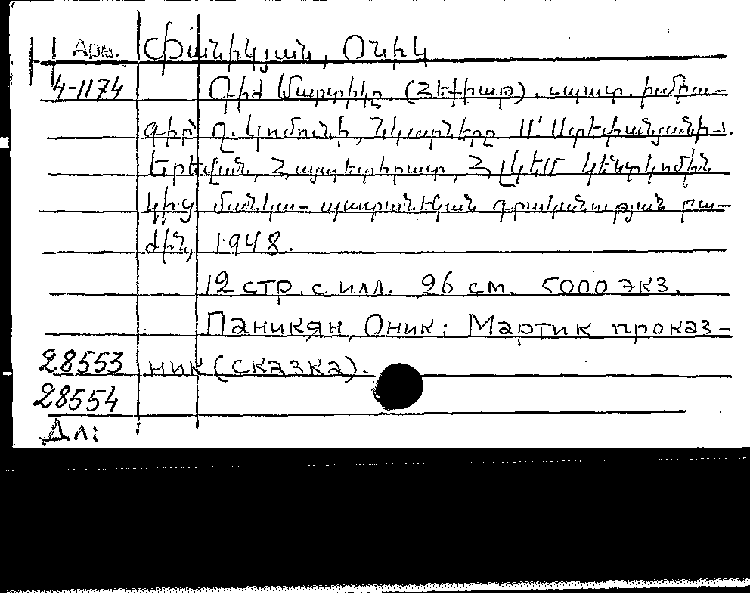 Арм. Փանիկյան, Օնիկ
4-1174 Գիժ Մարտիկը (Հեքիաթ). պատ. խմբա-
գիր՝ Ղ. Նկարները Ս. Ստեփանյանի.
Երևան, Հայպետհրատ, ՀԼԿԵՄ Կենտկոմին
կից մանկա-պատանեկան գրականության բա-
ժին, 1948.
12 стр. с илл. 26 см. 5000 экз.
Паникян, Оник: Мартик проказ-
28553 ник (сказка).
28554
Дл: